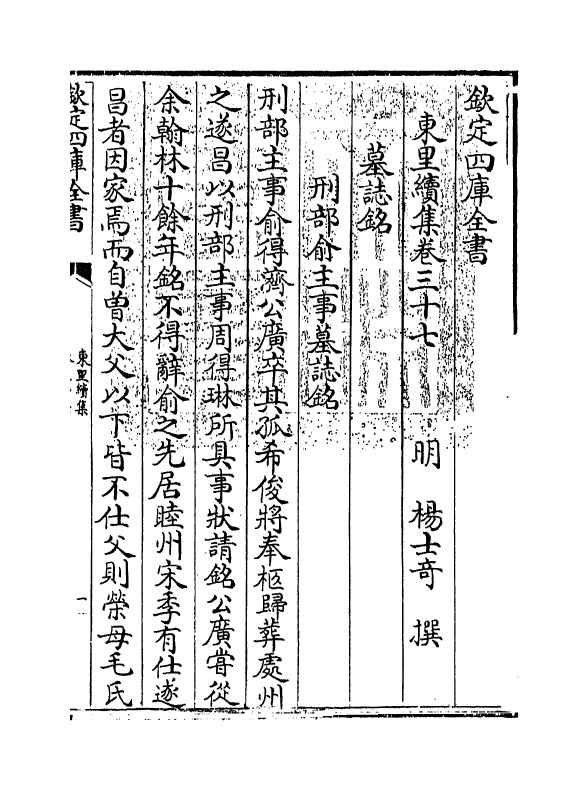 欽定四庫全書
東里續集卷三十七
明 楊士竒 撰
墓誌銘
刑部俞主事墓誌銘
刑部主事俞得濟公廣卒其孤希俊將奉柩歸葬處州
之遂昌以刑部主事周得琳所具事狀請銘公廣甞從
余翰林十餘年銘不得辭俞之先居睦州宋季有仕遂
昌者因家焉而自曽大父以下皆不仕父則榮母毛氏
欽定四庫全書
東里續集
一